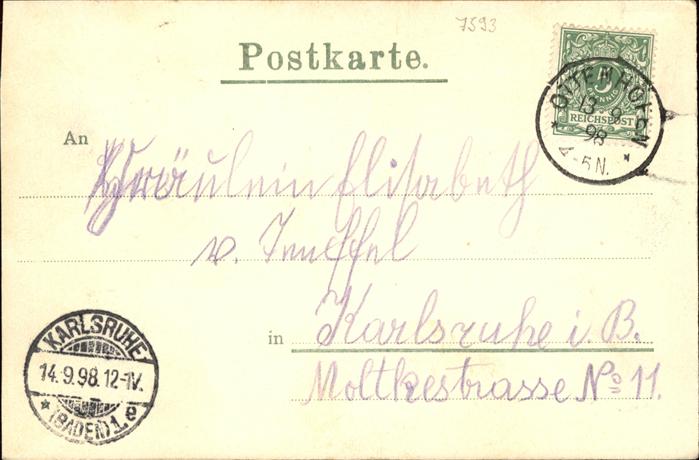 7593
Postkarte.
5
REICHSPOST
OTTENHÖFEN
13 9
98
4-5N.
An
Fräulein Elisabeth
v. Teuffel
in Karlsruhe i. B.
Moltkestrasse No 11.
KARLSRUHE
14.9.98.12-1V.
* (BADEN) 1.e